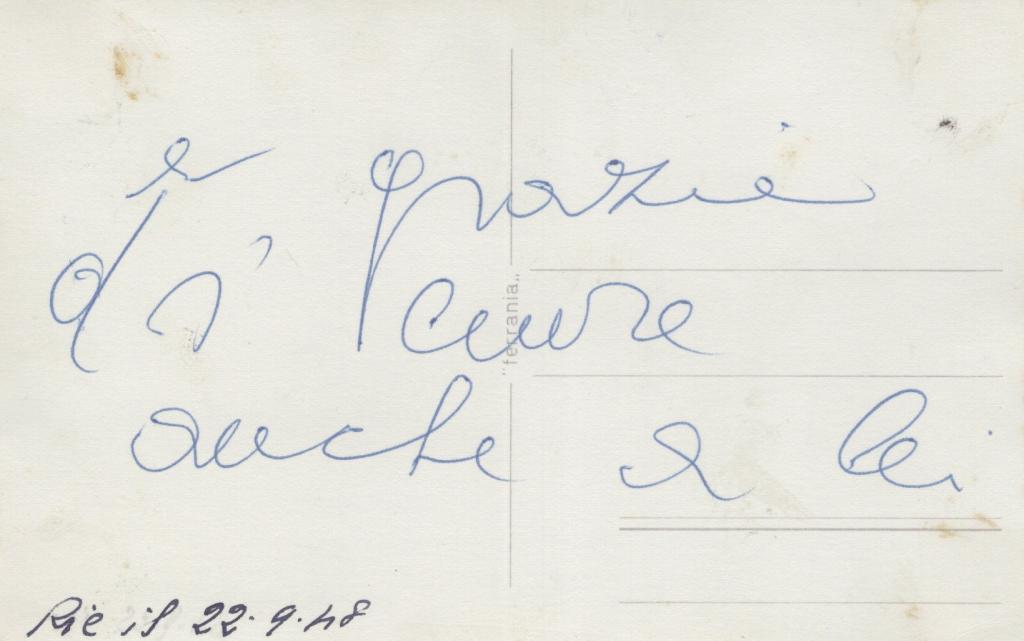 e grazie
di cuore
anche a lei
"ferrania"
Ric il 22.9.48